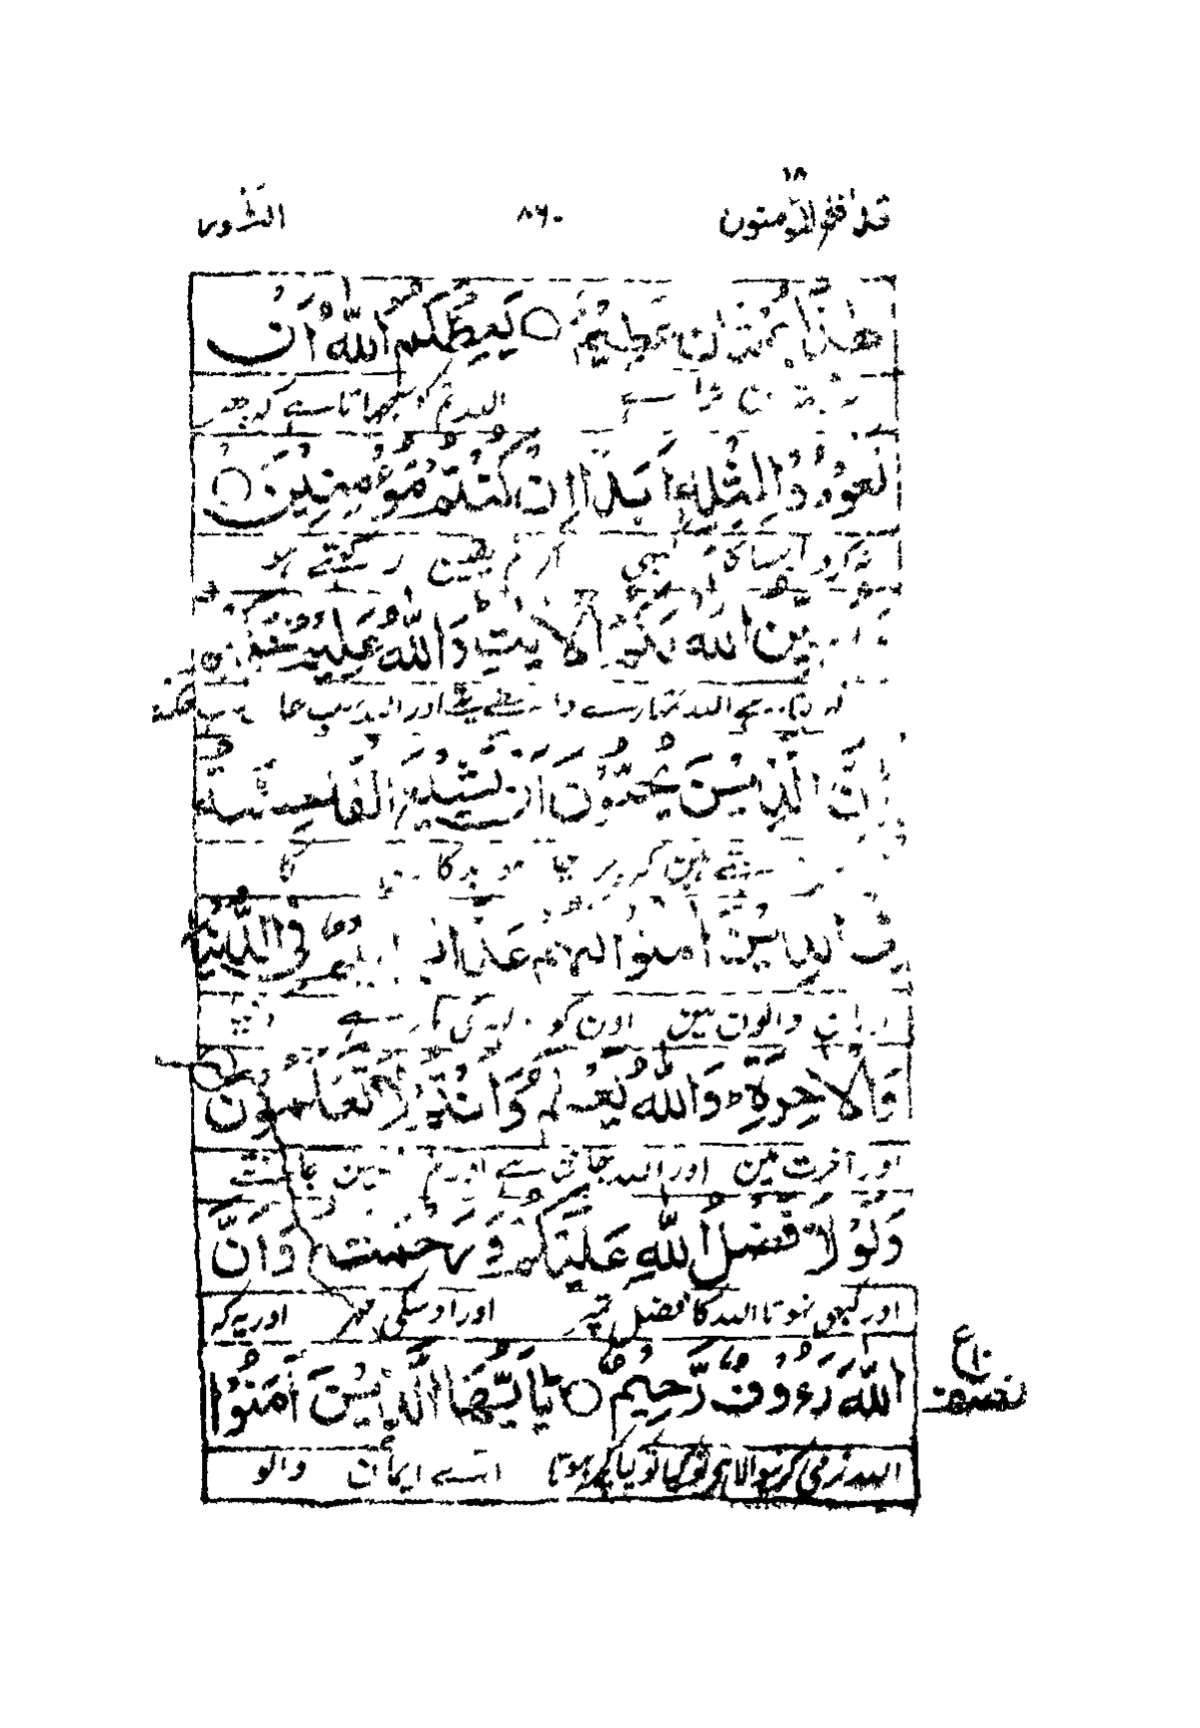 ١٨
قد افلح المؤمنون ٨٦٠ النور
هٰذَا بُهْتَانٌ عَظِيْمٌ ○ يَعِظُكُمُ اللّٰهُ اَنْ
اللہ تم کو سمجھاتا ہے کہ پھر
تَعُوْدُوْا لِمِثْلِهٖٓ اَبَدًا اِنْ كُنْتُمْ مُّؤْمِنِيْنَ ○
نہ کرو ایسا کام کبھی اگر تم یقین رکھتے ہو
وَيُبَيِّنُ اللّٰهُ لَكُمُ الْاٰيٰتِ ؕ وَاللّٰهُ عَلِيْمٌ حَكِيْمٌ ○
اللہ تمہارے واسطے پتے اور اللہ سب جانتا ہے حکمت
اِنَّ الَّذِيْنَ يُحِبُّوْنَ اَنْ تَشِيْعَ الْفَاحِشَةُ
چاہتے ہین کہ چرچا ہو بدکاری کا
فِى الَّذِيْنَ اٰمَنُوْا لَهُمْ عَذَابٌ اَلِيْمٌ فِى الدُّنْيَا
ایمان والون مین اون کو دکھ کی مار ہے
وَالْاٰخِرَةِ ؕ وَاللّٰهُ يَعْلَمُ وَاَنْتُمْ لَا تَعْلَمُوْنَ ○
اور آخرت مین اور اللہ جانتا ہے اور تم نہین جانتے
وَلَوْلَا فَضْلُ اللّٰهِ عَلَيْكُمْ وَرَحْمَتُهٗ وَاَنَّ
اور کبھی نہوتا اللہ کا فضل تمپر اور اوسکی مہر اور یہ کہ
اللّٰهَ رَءُوْفٌ رَّحِيْمٌ ○ يٰٓاَيُّهَا الَّذِيْنَ اٰمَنُوْا
اللہ نرمی کرنیوالا ہی تو کیا کچھ ہوتا اے ایمان والو